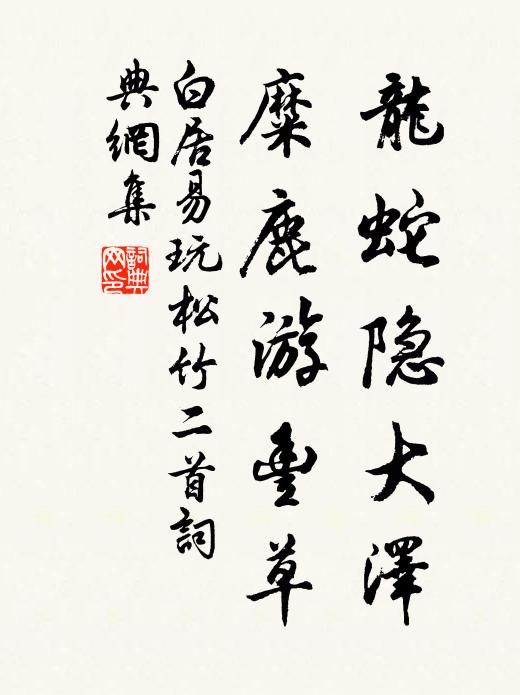 龍蛇隐大澤
麋鹿游豐草
白居易玩松竹二首詞
典網集
詞典
网印